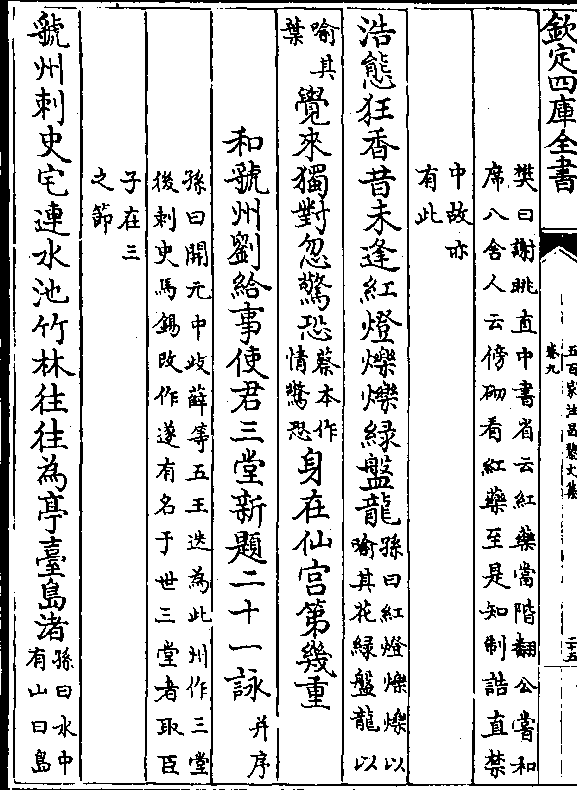 欽定四庫全書
五百家注昌黎文集
卷九
二十五
樊曰謝眺直中書省云紅藥當階翻公嘗和
席八舍人云傍砌看紅藥至是知制誥直禁
中故亦
有此
浩態狂香昔未逢紅燈爍爍緑盤龍孫曰紅燈爍爍以
喻其花緑盤龍以
喻其
葉
覺來獨對忽驚恐蔡本作
情驚恐
身在仙宫第幾重
和虢州劉給事使君三堂新題二十一詠并序
孫曰開元中歧薛等五王迭為此州作三堂
後刺史馬錫改作遂有名于世三堂者取臣
子在三
之節
虢州刺史宅連水池竹林往往為亭臺島渚孫曰水中
有山曰島